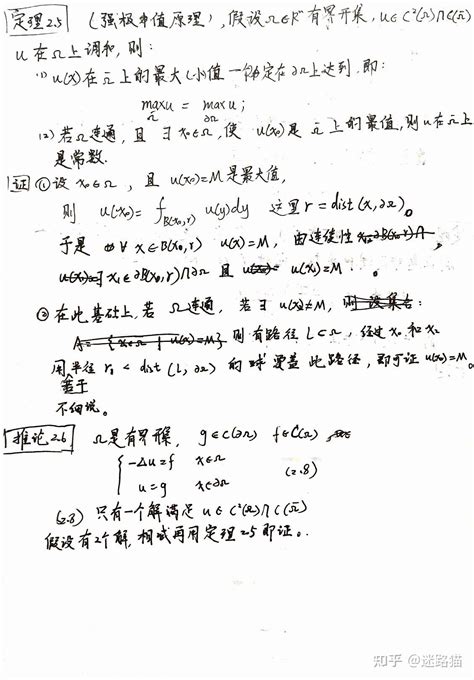 定理2.5 (强极值原理), 假设Ω∈Rⁿ有界开集, u∈C²(Ω)∩C(Ω̄)
u在Ω上调和, 则:
(1) u(x)在Ω̄上的最大(小)值一定在∂Ω上达到, 即:
max_Ω̄ u = max_∂Ω u;
(2) 若Ω连通, 且∃x₀∈Ω, 使 u(x₀)是Ω̄上的最值, 则u在Ω上
是常数.
证 ① 设 x₀∈Ω, 且 u(x₀)=M 是最大值,
则 u(x₀)= ⨍_B(x₀,r) u(y)dy 这里 r = dist(x,∂Ω)。
于是 ∀x∈B(x₀,r) u(x)=M, 由连续性
∃x₁∈∂B(x₀,r)∩∂Ω 且 u(x₁)=M。
② 在此基础上, 若Ω连通, 若∃ u(x₂)≠M,
A={x∈Ω | u(x)=M} 则有路径 L⊂Ω, 经过x₀和x₂
用半径 r₁ < dist(L,∂Ω) 的球覆盖此路径, 即可证 u(x₂)=M。
不细说。
推论2.6 Ω是有界开集, g∈C(∂Ω) f∈C(Ω)
-Δu=f x∈Ω
u=g x∈∂Ω (2.8)
(2.8) 只有一个解满足 u∈C²(Ω)∩C(Ω̄)
假设有2个解, 相减再用定理2.5即证。
知乎 @迷路猫